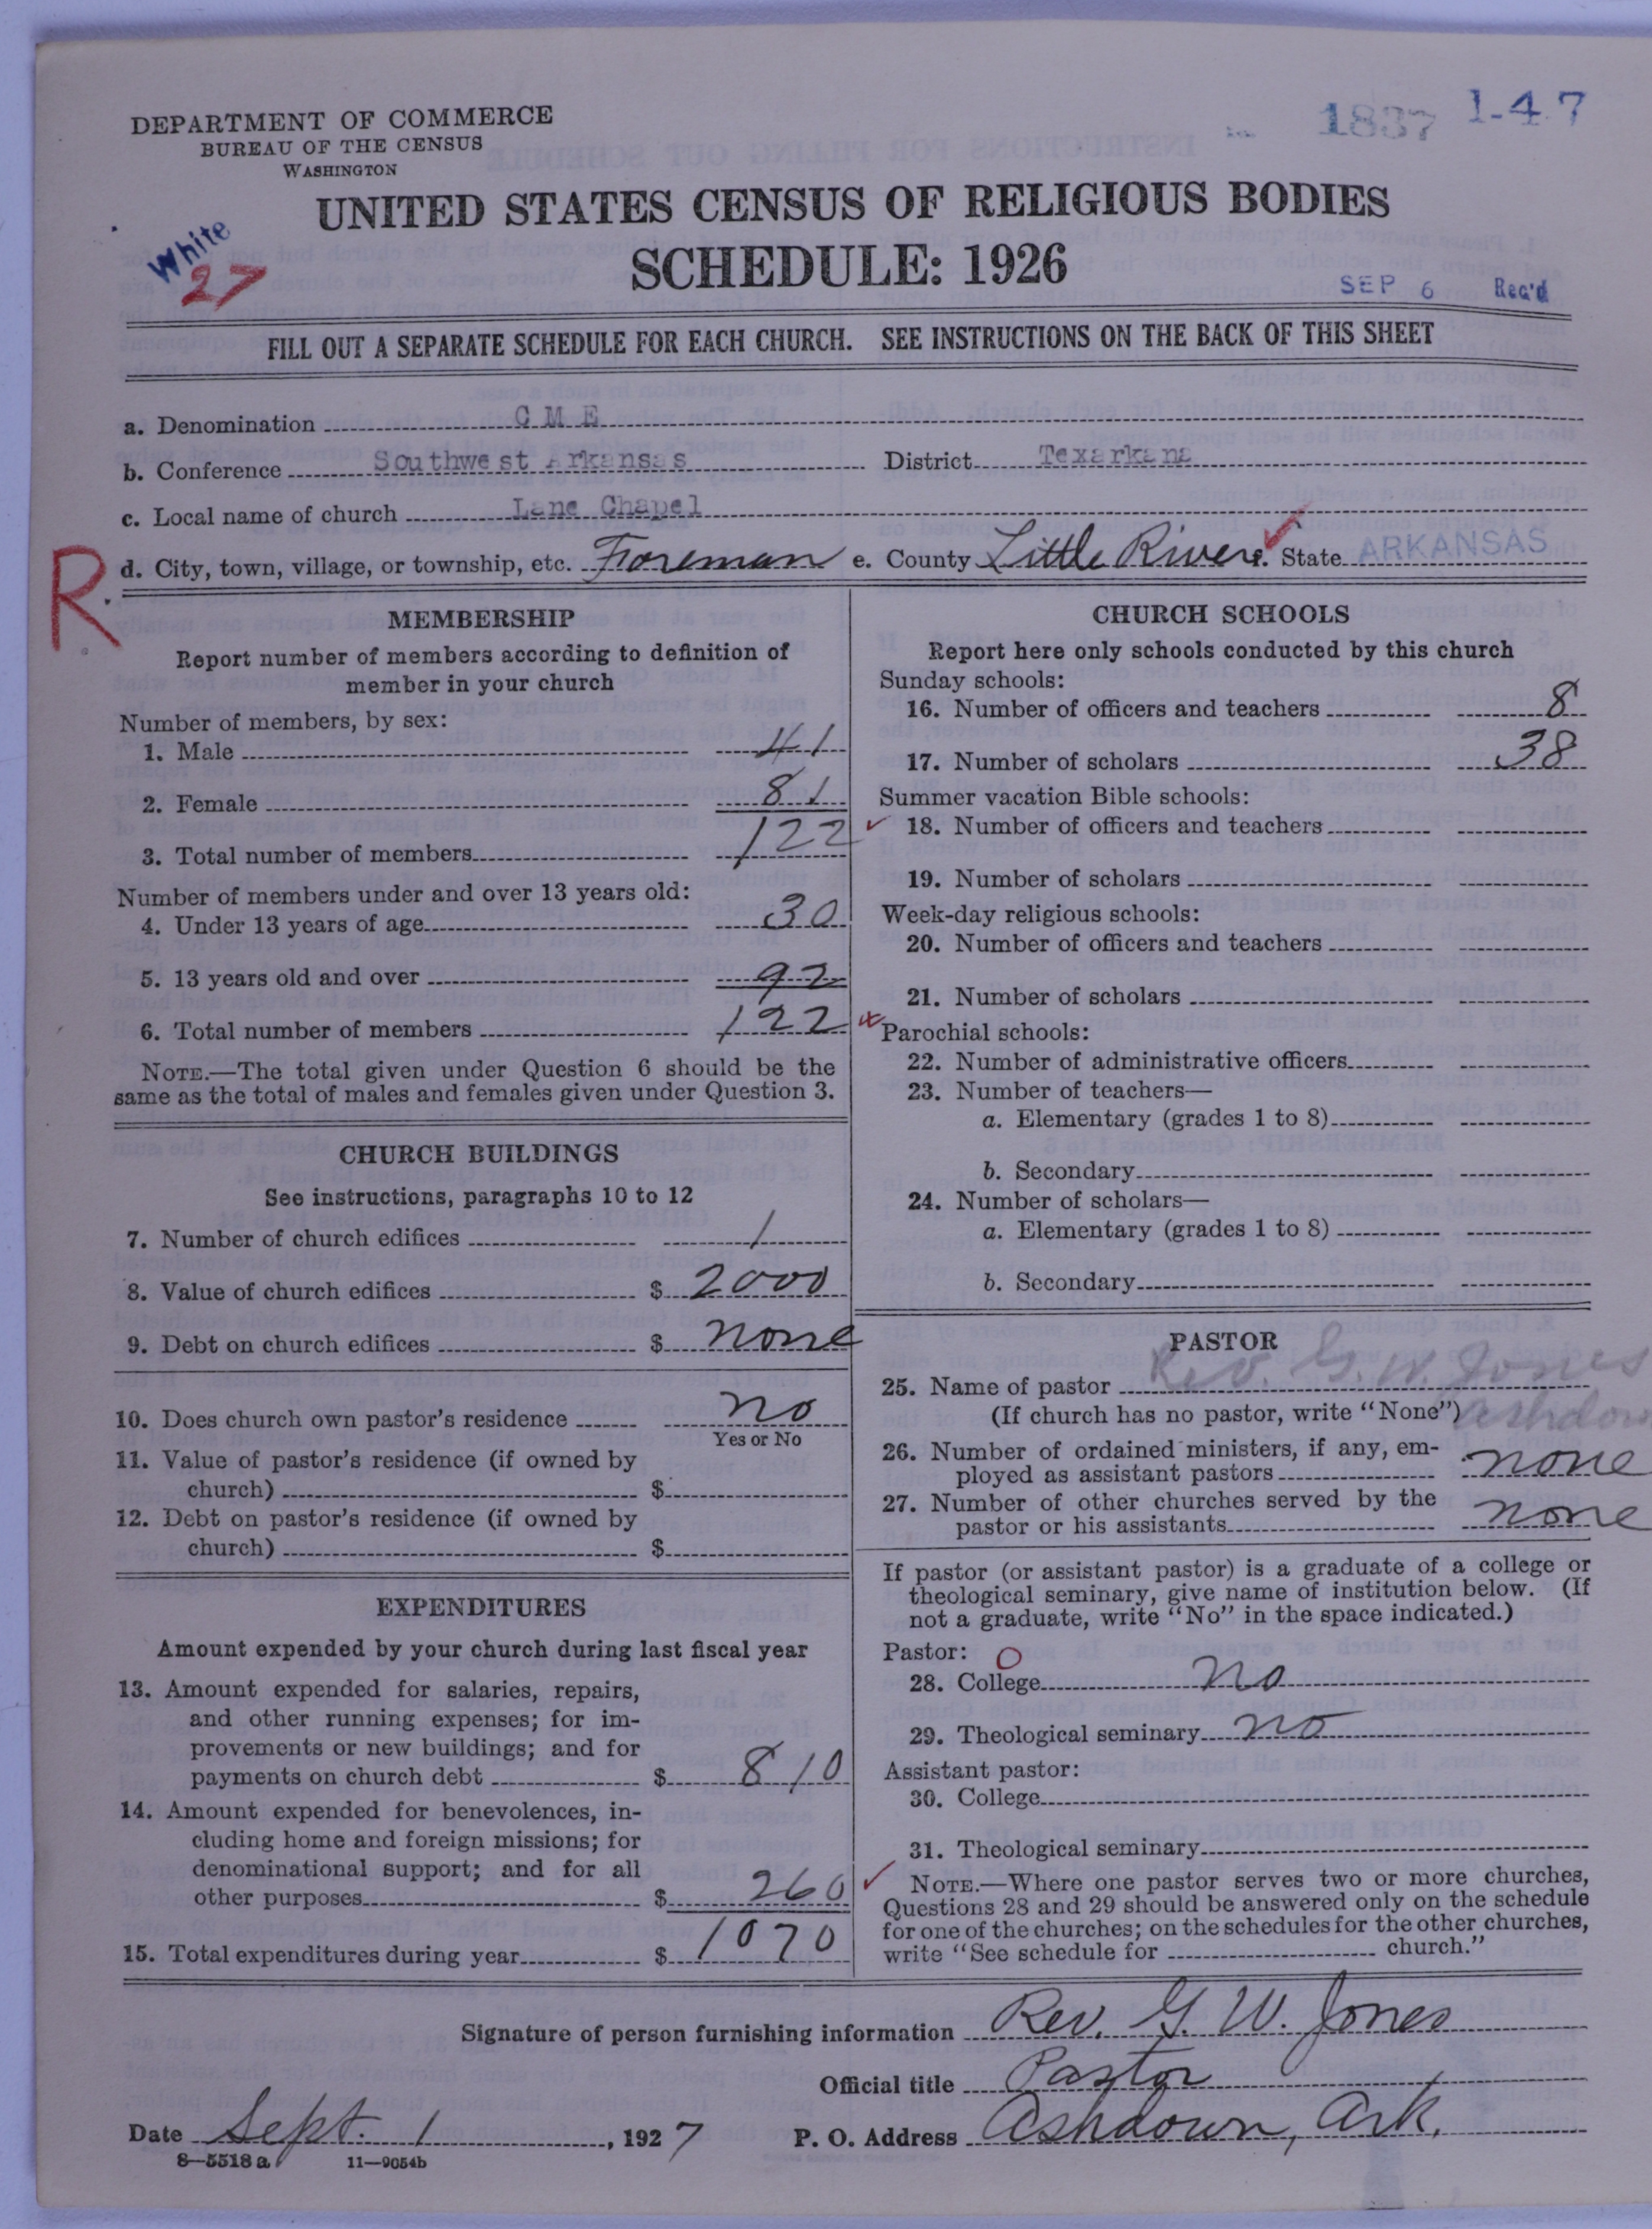 DEPARTMENT OF COMMERCE
BUREAU OF THE CENSUS
WASHINGTON
1837 1-47
UNITED STATES CENSUS OF RELIGIOUS BODIES
SCHEDULE: 1926
White
27
SEP 6 Rec'd
FILL OUT A SEPARATE SCHEDULE FOR EACH CHURCH. SEE INSTRUCTIONS ON THE BACK OF THIS SHEET
a. Denomination C M E
b. Conference Southwest Arkansas District Texarkana
c. Local name of church Lane Chapel
R
d. City, town, village, or township, etc. Foreman e. County Little River State ARKANSAS
MEMBERSHIP
Report number of members according to definition of
member in your church
Number of members, by sex:
1. Male 41
2. Female 81
3. Total number of members 122
Number of members under and over 13 years old:
4. Under 13 years of age 30
5. 13 years old and over 92
6. Total number of members 122
NOTE.—The total given under Question 6 should be the
same as the total of males and females given under Question 3.
CHURCH BUILDINGS
See instructions, paragraphs 10 to 12
7. Number of church edifices 1
8. Value of church edifices $ 2000
9. Debt on church edifices $ none
10. Does church own pastor's residence no
Yes or No
11. Value of pastor's residence (if owned by
church) $
12. Debt on pastor's residence (if owned by
church) $
EXPENDITURES
Amount expended by your church during last fiscal year
13. Amount expended for salaries, repairs,
and other running expenses; for im-
provements or new buildings; and for
payments on church debt $ 810
14. Amount expended for benevolences, in-
cluding home and foreign missions; for
denominational support; and for all
other purposes $ 260
15. Total expenditures during year $ 1070
CHURCH SCHOOLS
Report here only schools conducted by this church
Sunday schools:
16. Number of officers and teachers 8
17. Number of scholars 38
Summer vacation Bible schools:
18. Number of officers and teachers
19. Number of scholars
Week-day religious schools:
20. Number of officers and teachers
21. Number of scholars
Parochial schools:
22. Number of administrative officers
23. Number of teachers—
a. Elementary (grades 1 to 8)
b. Secondary
24. Number of scholars—
a. Elementary (grades 1 to 8)
b. Secondary
PASTOR
25. Name of pastor Rev. G. W. Jones
(If church has no pastor, write "None") Ashdow
26. Number of ordained ministers, if any, em-
ployed as assistant pastors none
27. Number of other churches served by the
pastor or his assistants none
If pastor (or assistant pastor) is a graduate of a college or
theological seminary, give name of institution below. (If
not a graduate, write "No" in the space indicated.)
Pastor: O
28. College no
29. Theological seminary no
Assistant pastor:
30. College
31. Theological seminary
NOTE.—Where one pastor serves two or more churches,
Questions 28 and 29 should be answered only on the schedule
for one of the churches; on the schedules for the other churches,
write "See schedule for church."
Signature of person furnishing information Rev. G. W. Jones
Official title Pastor
Date Sept. 1, 1927 P. O. Address Ashdown, Ark.
8—5518 a 11—9054b